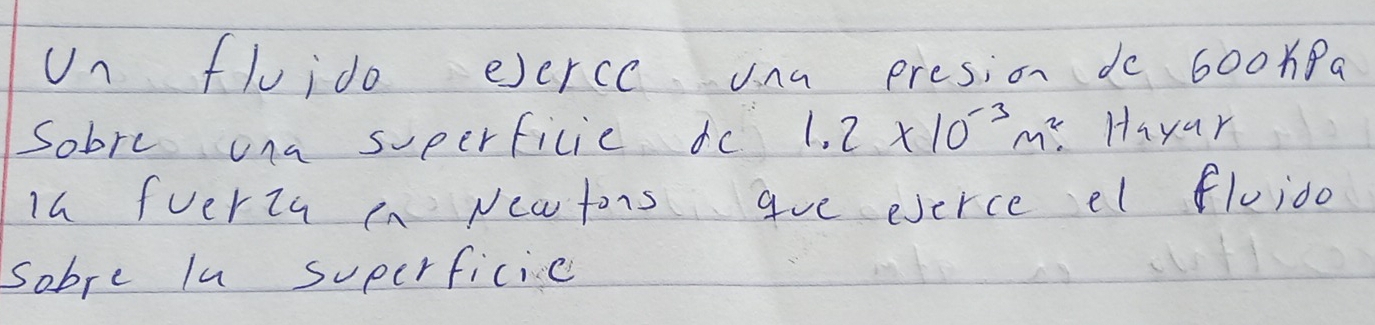 Un fluido ejerce una presion de 600 KPa
Sobre una superficie de 1.2 x10⁻³ m². Hayar
la fuerza en Newtons que ejerce el fluido
sobre la superficie